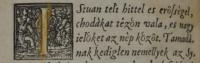 Stuan tels hittel es erőssegel,
chodákat tézōn vala, es nagy
ieloket az nép kőzőt. Tamada-
nak kediglen nemellyek az Sy-